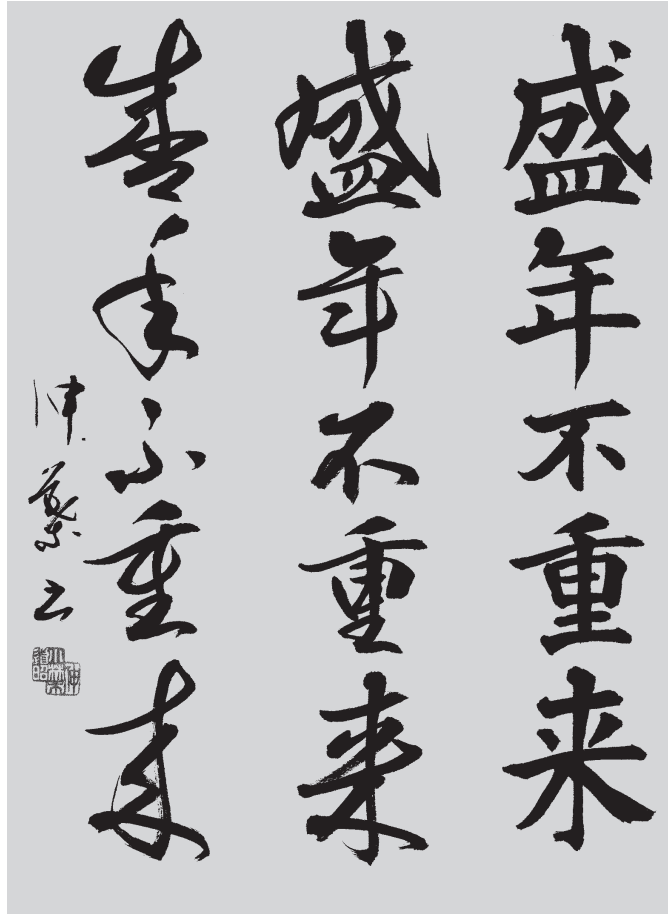 盛年不重来
盛年不重来
盛年不重来